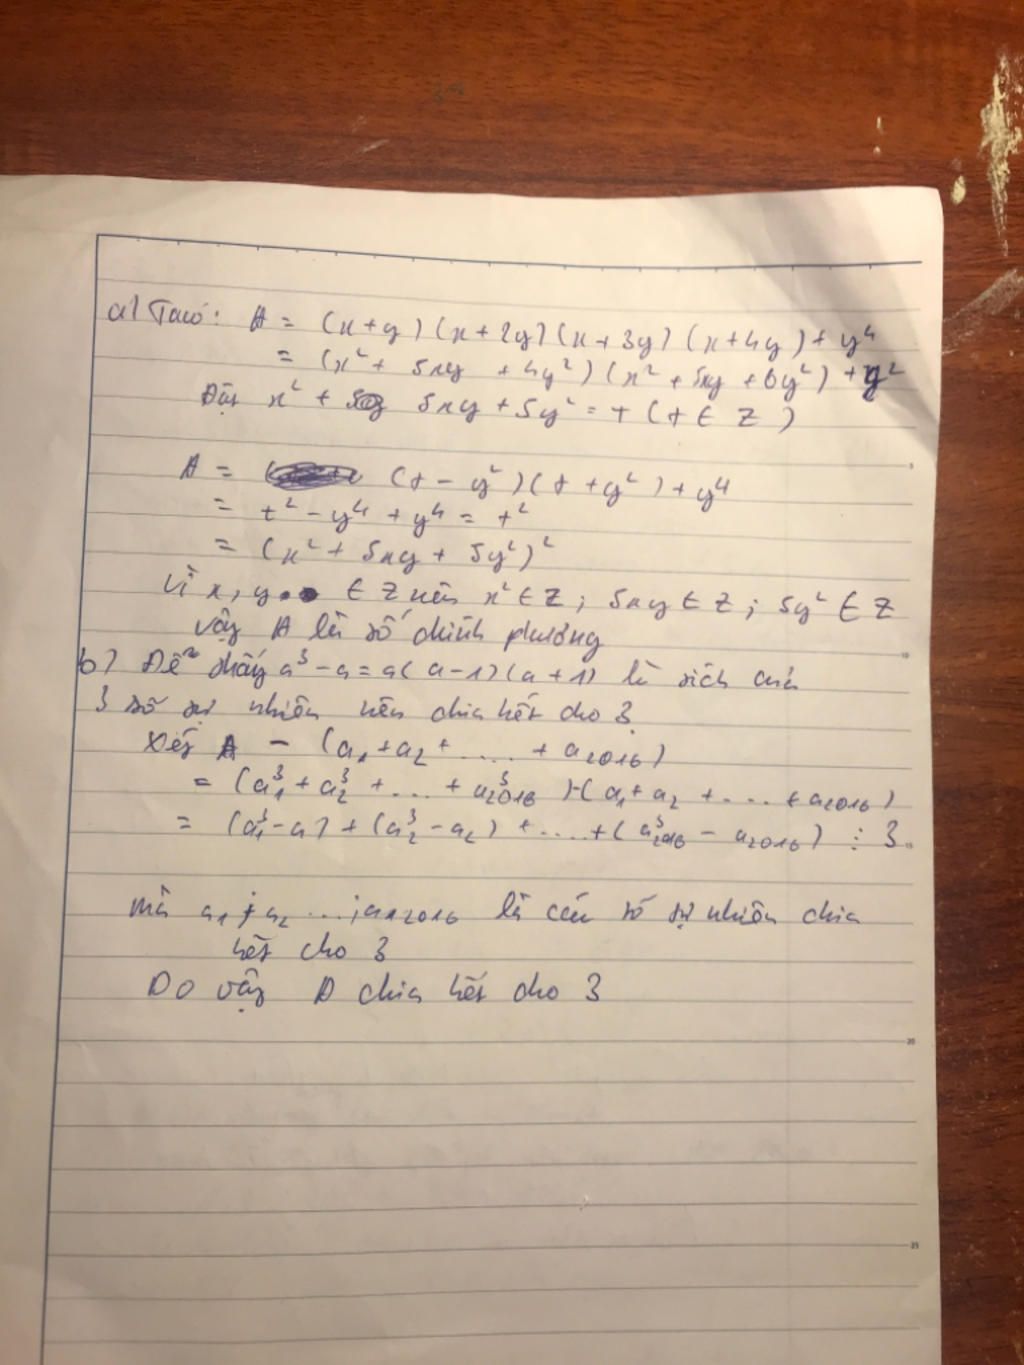 a) Ta có: A = (x+y)(x+2y)(x+3y)(x+4y)+y⁴
= (x² + 5xy + 4y²)(x² + 5xy + 6y²) + y²
Đặt x² + 5xy + 5y² = t (t ∈ Z)
A = (t - y²)(t + y²) + y⁴
= t² - y⁴ + y⁴ = t²
= (x² + 5xy + 5y²)²
Vì x, y ∈ Z nên x² ∈ Z; 5xy ∈ Z; 5y² ∈ Z
Vậy A là số chính phương
b) Dễ thấy a³ - a = a(a-1)(a+1) là tích của
3 số tự nhiên nên chia hết cho 3
Xét A - (a₁+a₂+ .... + a₂₀₁₆)
= (a₁³ + a₂³ + ... + a₂₀₁₆³)-(a₁+a₂ + .... + a₂₀₁₆)
= (a₁³-a₁) + (a₂³-a₂) + ....+(a₂₀₁₆³ - a₂₀₁₆) ⋮ 3
mà a₁; a₂ ...; a₂₀₁₆ là các số tự nhiên chia
hết cho 3
Do vậy A chia hết cho 3
5
10
15
20
25